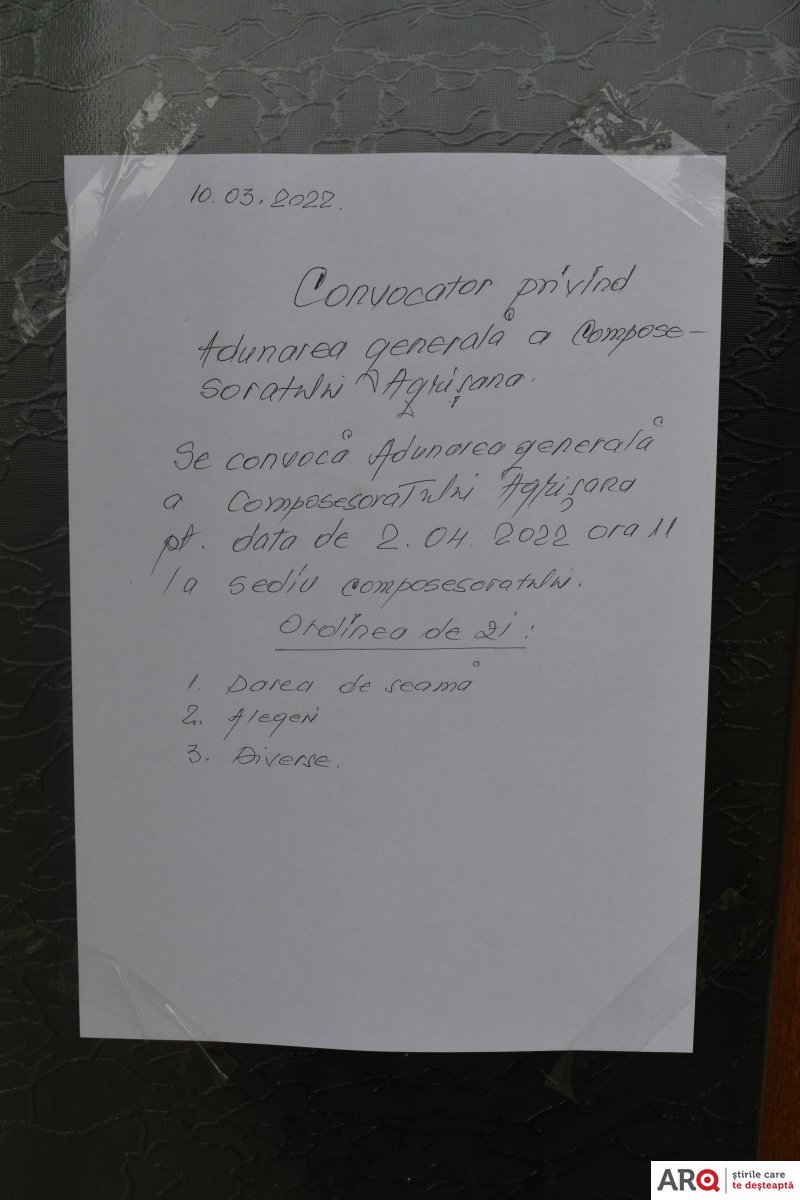 10.03.2022.
Convocator privind
Adunarea generală a Compose-
soratului Agrișana.
Se convocă Adunarea generală
a Composesoratului Agrișana
pt. data de 2.04.2022 ora 11
la sediu composesoratului.
Ordinea de zi:
1. Darea de seamă
2. Alegeri
3. Diverse.
ARQ știrile care
te deșteaptă